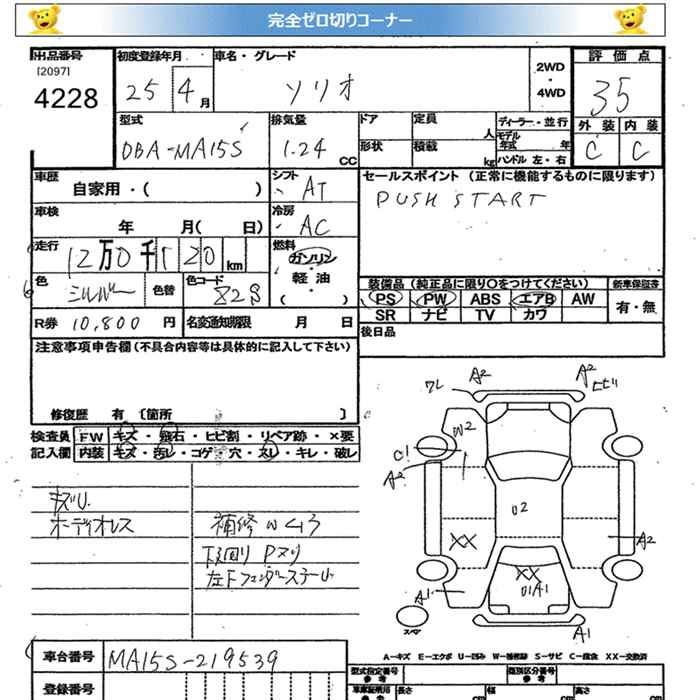 完全ゼロ切りコーナー
出品番号 初度登録年月 車名・グレード 2WD・4WD 評価点
[2097]
4228 25 4月 ソリオ 35
型式 排気量 ドア 定員 人 ディーラー・並行 外装 内装
DBA-MA15S 1.24 CC 形状 積載 kg モデル年式 年 C C
ハンドル 左・右
車歴 シフト セールスポイント (正常に機能するものに限ります)
自家用・( ) AT PUSH START
車検 冷房
年 月( 日) AC
走行 燃料
12万0千120km ガソリン・軽油・( )
色 シルバー 色替 色コード Z2S 装備品 (純正品に限り○をつけてください) 新車保証書
PS PW ABS エアB AW 有・無
R券 10,800円 名変通知期限 月 日 SR ナビ TV カワ
注意事項申告欄 (不具合内容等は具体的に記入して下さい) 後日品
修復歴 有 〔箇所 〕
検査員 FW キズ・飛石・ヒビ割・リペア跡・×要
記入欄 内装 キズ・汚レ・コゲ・穴・スレ・キレ・破レ
キズU.
ホーディオレス 補修Wムラ
下回りPヌリ
左FフェンダーステーU
ワレ A2 A2 ヒビ
W2
C1
A2
U2
XX A2
XX
U1A1
A1
スペア A1
A-キズ E-エクボ U-凹み W-補修跡 S-サビ C-腐食 XX-交換済
車台番号 MA15S-219539
登録番号
型式指定番号 参考 類別区分番号 参考
長さ 幅 高さ